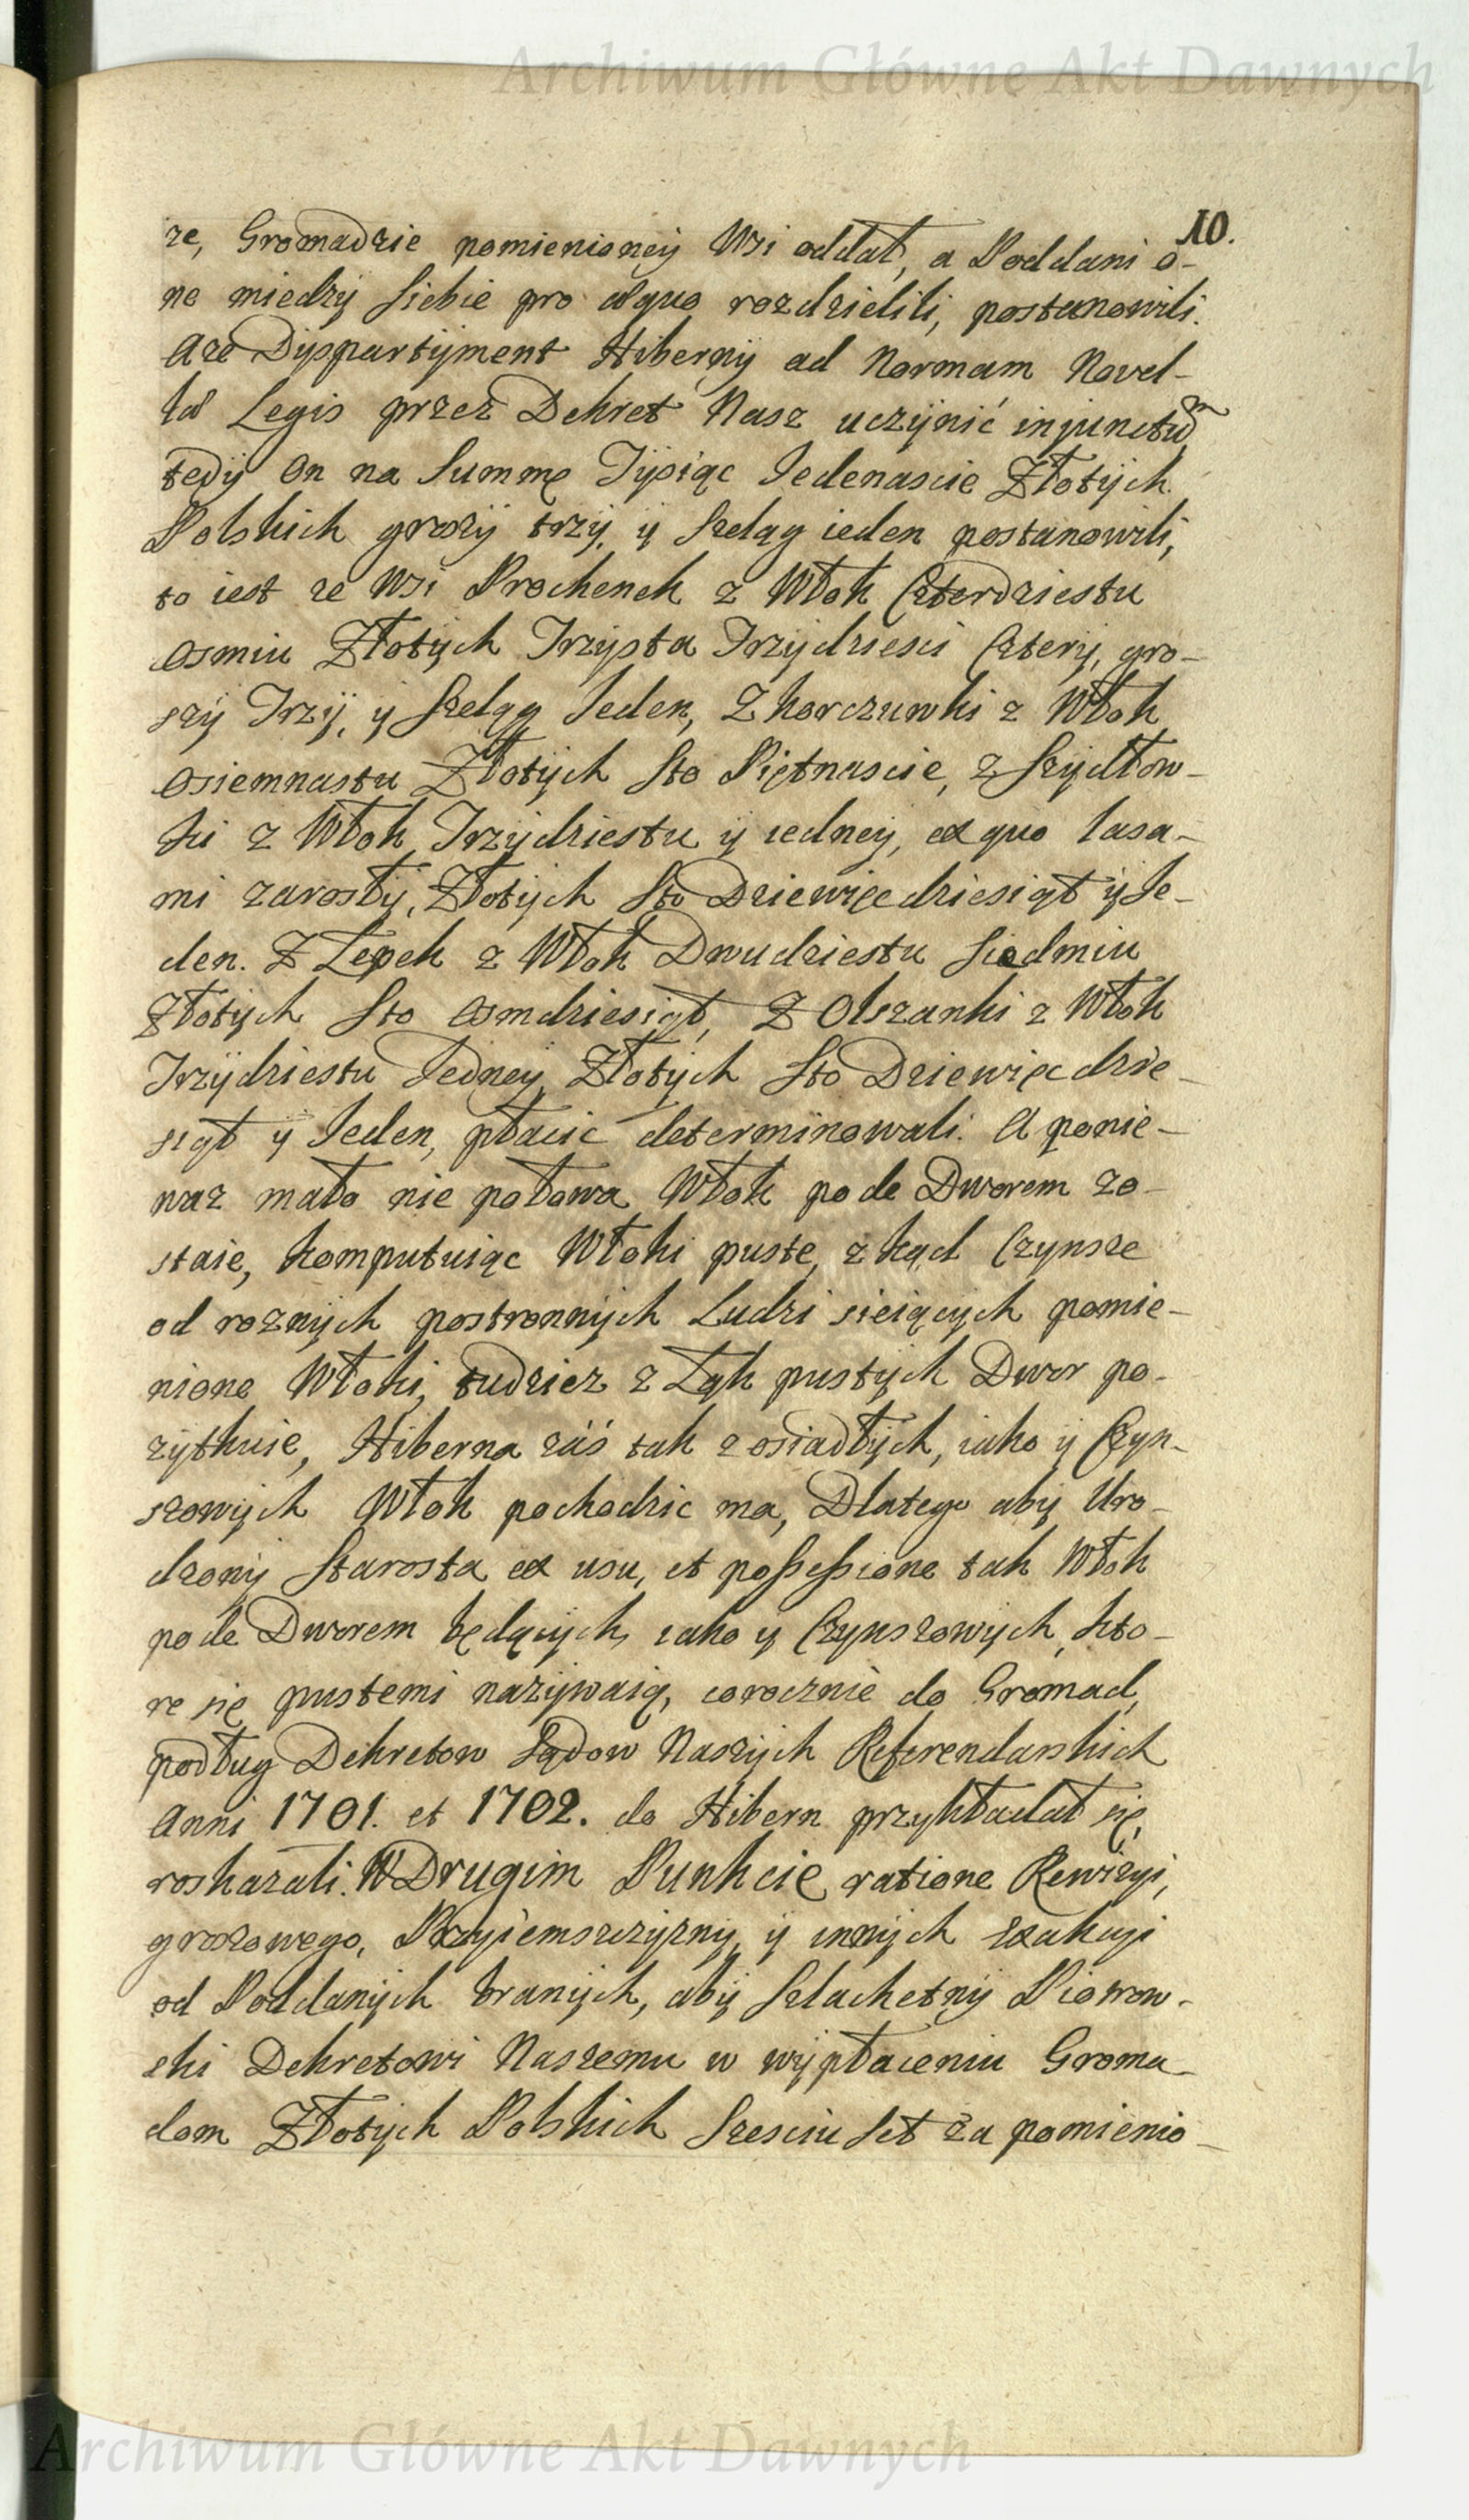 Archiwum Główne Akt Dawnych
10.
ze, Gromadzie pomienioney Wsi oddał, a Poddani o-
ne miedzy siebie pro æquo rozdzielili, postanowili.
A że Dyspartyment Hiberny ad Normam Novel-
læ Legis przez Dekret Nasz uczynić injunctum
tedy on na Summę Tysiąc Jedenascie Złotych
Polskich groszy trzy, y Szeląg ieden postanowili,
to iest ze Wsi Prochenek z Włok Czterdziestu
osmiu Złotych Trzysta Trzydziesci Cztery, gro-
szy Trzy, y Szeląg Jeden, Z horczuwki z Włok
osiemnastu Złotych Sto Piętnascie, z Szydłow-
ki z Włok Trzydziestu y iedney, ex quo lasa-
mi zarosły, Złotych Sto Dziewięcdziesiąt y Je-
den. Z Łepek z Włok Dwudziestu Siedmiu
Złotych Sto osmdziesiąt, Z Olszanki z Włok
Trzydziestu Jedney Złotych Sto Dziewięcdzie-
siąt y Jeden, płacić determinowali. A ponie-
waz mało nie połowa Włok pode Dworem zo-
staie, komputuiąc Włoki puste, z kąd Czynsze
od roznych postronnych Ludzi sieiących pomie-
nione Włoki, tudziez z Łąk pustych Dwor po-
zytkuie, Hiberna záś tak z osiadłych, iako y Czyn-
szowych Włok pochodzic ma, Dlatego aby Uro-
dzony Starosta ex usu, et possessione tak Włok
pode Dworem będących, iako y Czynszowych, kto-
re się pustemi nazywaią, corocznie do Gromad,
podług Dekretow Sądow Naszych Referendarskich
Anni 1701. et 1702. do Hibern przykładał się,
roskazali. W Drugim Punkcie ratione Rewizyi,
groszowego, Przyiemszczyzny, y innych exakcyi
od Poddanych branych, aby Szlachetny Piotrow-
ski Dekretowi Naszemu w wypłaceniu Groma-
dom Złotych Polskich Szesciu Set za pomienio-
Archiwum Główne Akt Dawnych